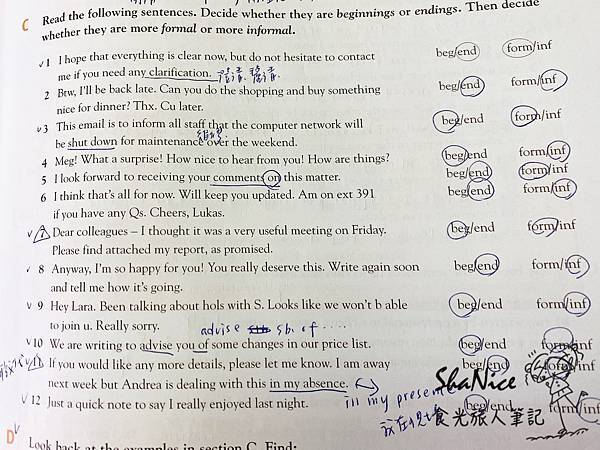 C Read the following sentences. Decide whether they are beginnings or endings. Then decide
whether they are more formal or more informal.
√1 I hope that everything is clear now, but do not hesitate to contact beg/end form/inf
me if you need any clarification.
2 Btw, I'll be back late. Can you do the shopping and buy something beg/end form/inf
nice for dinner? Thx. Cu later.
√3 This email is to inform all staff that the computer network will beg/end form/inf
be shut down for maintenance over the weekend.
4 Meg! What a surprise! How nice to hear from you! How are things? beg/end form/inf
5 I look forward to receiving your comments on this matter. beg/end form/inf
6 I think that's all for now. Will keep you updated. Am on ext 391 beg/end form/inf
if you have any Qs. Cheers, Lukas.
√7 Dear colleagues – I thought it was a very useful meeting on Friday. beg/end form/inf
Please find attached my report, as promised.
√8 Anyway, I'm so happy for you! You really deserve this. Write again soon beg/end form/inf
and tell me how it's going.
√9 Hey Lara. Been talking about hols with S. Looks like we won't b able beg/end form/inf
to join u. Really sorry.
advise sb. of ....
√10 We are writing to advise you of some changes in our price list. beg/end form/inf
√11 If you would like any more details, please let me know. I am away beg/end form/inf
next week but Andrea is dealing with this in my absence.
ShaNice
in my presence
√12 Just a quick note to say I really enjoyed last night. beg/end form/inf
食光旅人筆記
D√ Look back at the examples in section C. Find: